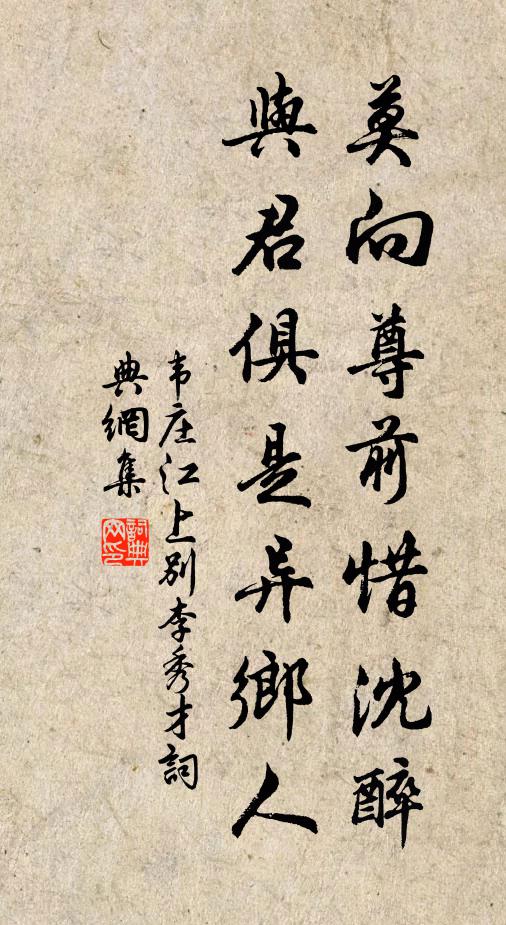 莫向尊前惜沈醉
與君俱是异鄉人
韦庄江上别李秀才詞
典網集
詞典
网印